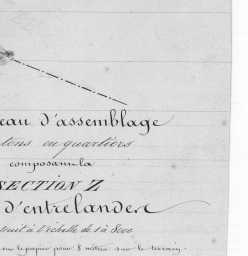 eau d'assemblage
tons en quartiers
composant la
SECTION Z
d'entrelandere
truit à l'échelle de 1 à 8000
sur le papier pour 8 mètres sur le terrain.